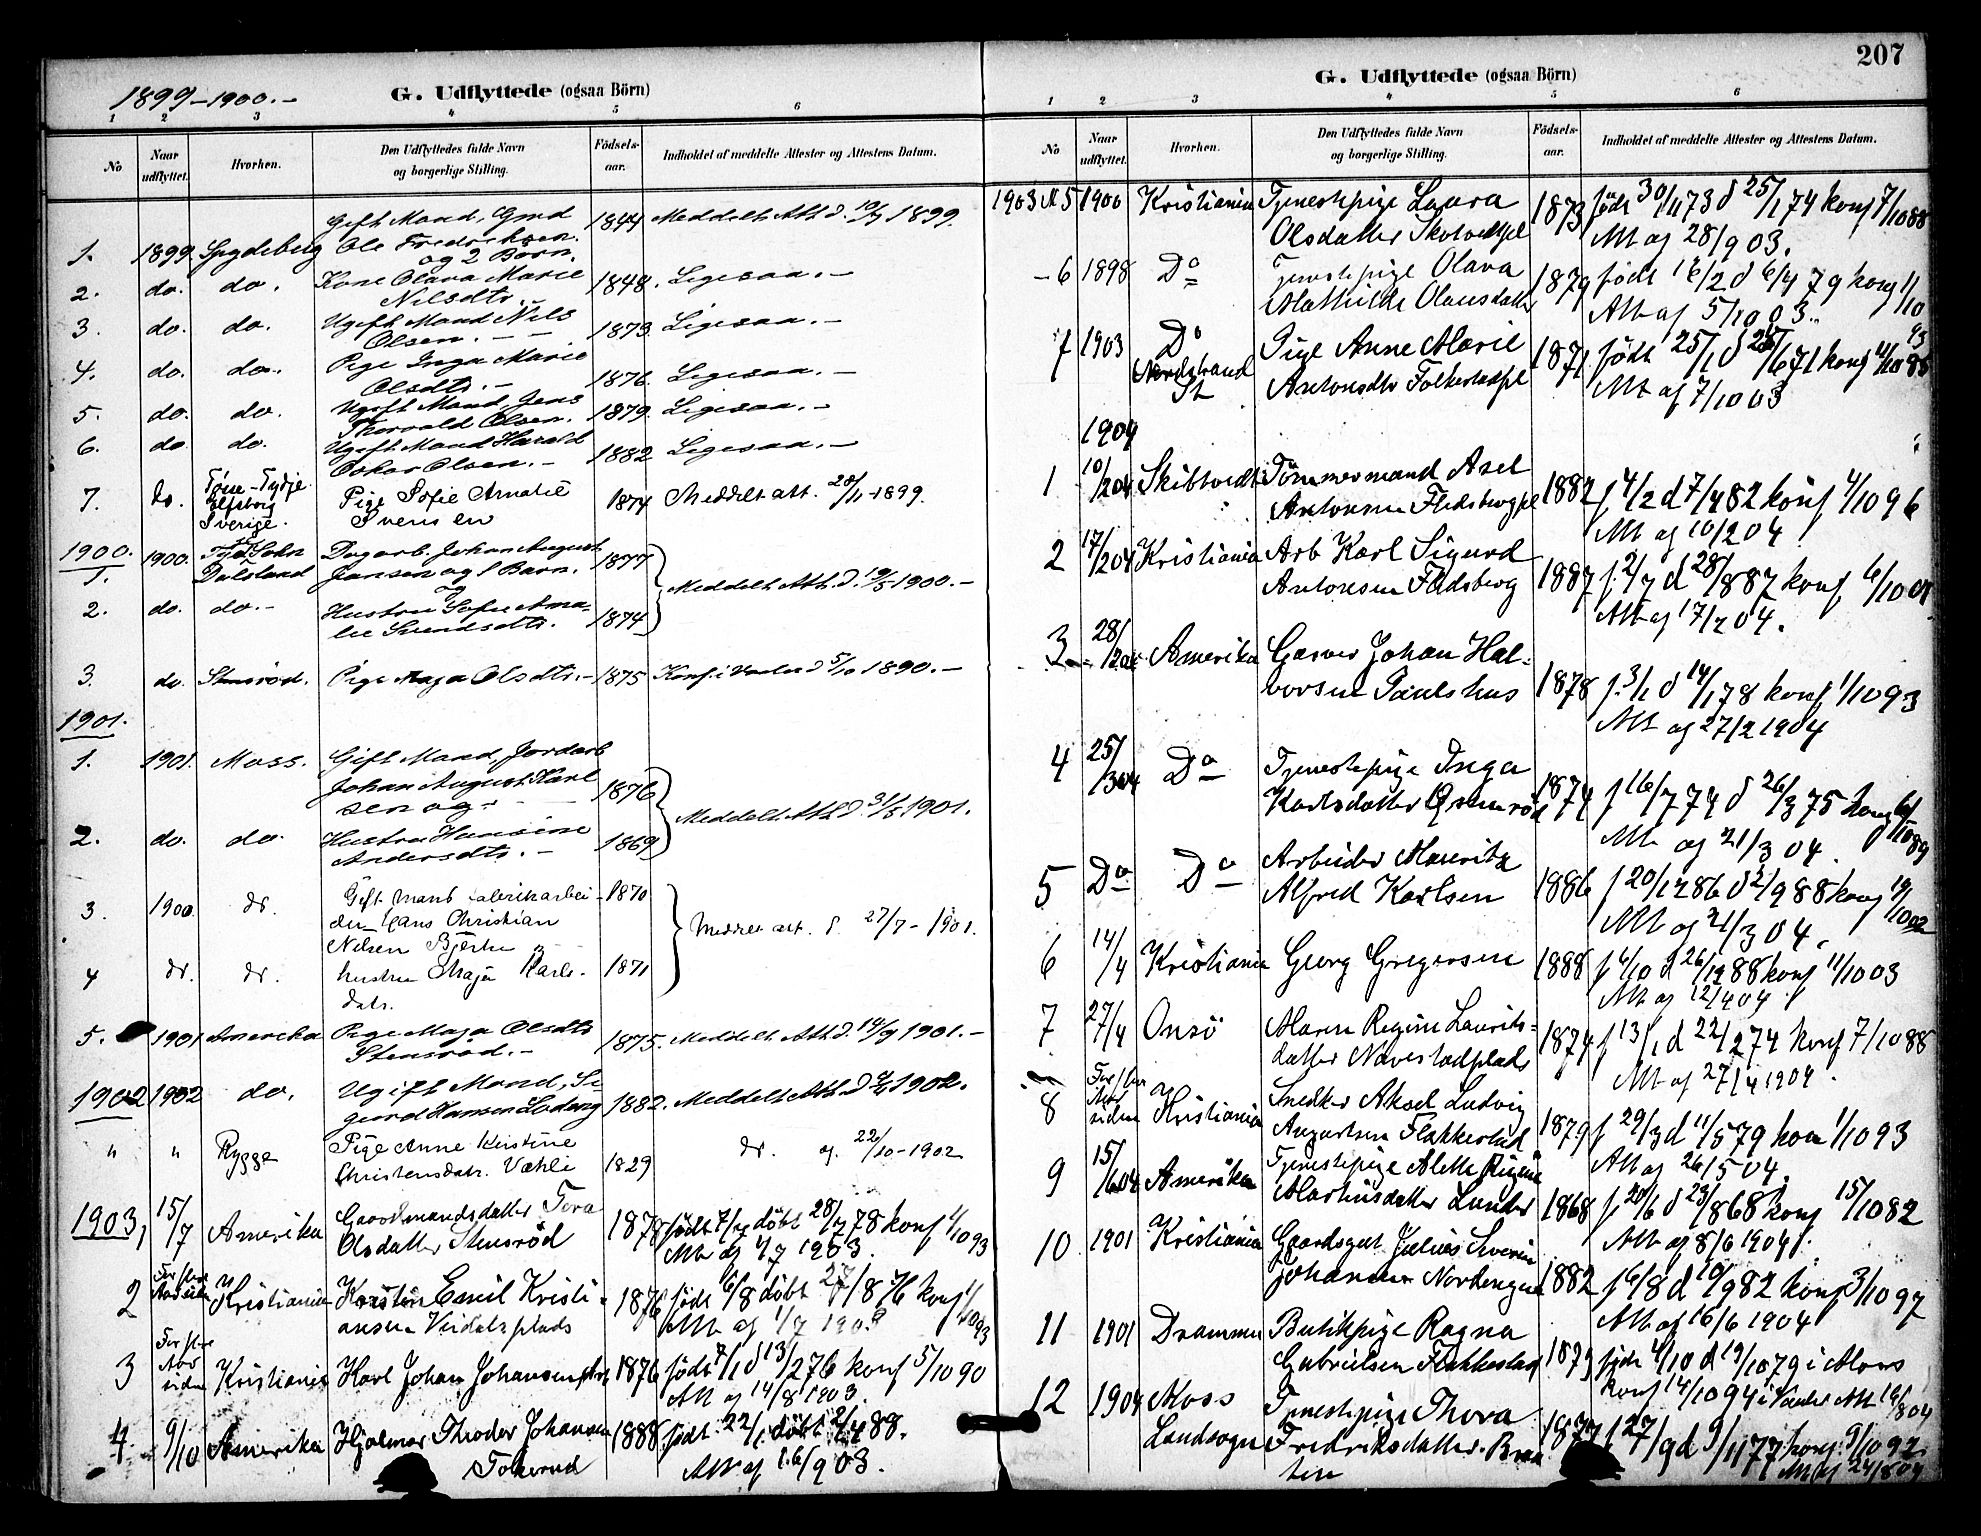 1899-1900.-
G. Udflyttede (ogsaa Börn)
1 2 3 4 5 6
No
Naar udflyttet.
Hvorhen.
Den Udflyttedes fulde Navn og borgerlige Stilling.
Födsels-aar.
Indholdet af meddelte Attester og Attestens Datum.
Gift Mand, Gmd 1844 Meddelt Att. d. 10/9 1899.
1. 1899 Spydeberg Ole Fredriksen
og 2 Børn.
2. do. do. Kone Olava Marie 1848. Ligesaa. -
Nilsdtr.
3. do. do. Ugift Mand Nils 1873. Ligesaa. -
Olsen. -
4. do. do. Pige Inga Marie 1876. Ligesaa. -
Olsdtr. -
5. do. do. Ugift Mand, Jens 1879. Ligesaa. -
Thorvald Olsen.
6. do. do. Ugift Mand Harald 1882 Ligesaa. -
Oskar Olsen. -
7. do. Elfsborg Sverige. Pige Sofie Amalie 1874 Meddelt att. 28/11-1899.
Svensen
1900.
1. 1900. Dalsland Dagarb. Johan August 1877
Jansen og 1 Barn. Meddelt Att. d. 19/5 1900. -
og
2. do. do. - Hustru Sofie Ama-
lie Svendsdtr. 1874
3. do. Stensrød. Pige Maja Olsdtr. - 1875 Konf. i Vaaler d 5/10 1890. -
1901.
1. 1901. Moss. Gift Mand, Jordarb
Johan August Karl 1876
sen og - Meddelt Att. d. 31/5 1901.
2. do. do. Hustru Hansine
Andersdtr. - 1869
3. 1900. do. Gift mand fabrikarbei- 1870
der Hans Christian Meddelt att. d. 27/7-1901.
Nilsen Bjerke
4 do. do. hustru Maja Karls- 1871
datr.
5. 1901 Amerika Pige Maja Olsdtr 1875. Meddelt Att. d. 14/9 1901. -
Stensrød. -
1902 1902 do. Ugift Mand, Si
gurd Hansen 1882. Meddelt Att. d 1902.
" " Rygge Pige Anne Kristine do. af 22/10-1902
Christensdatr. Væhli 1829
1903, 15/7 Amerika Gaardmandsdatter Tora 1878 født 7/7 døbt 28/7 78 konf 1/10 93
Olsdatter Stensrød Att af 4/7 1903.
2 Kristiania Kristen Emil Kristi- 1876 født 6/8 døbt 27/8 76 konf 1/10 93
ansen Veidalsplads Att af 1/7 1903
3 For flere Aar siden Kristiania Karl Johan Johansen 1876 født 7/1 d 13/2 76 konf 5/10 90
Att af 14/8 1903.
4 9/10 Amerika Hjalmar Theodor Johansen 1888 født 22/1 døbt 2/4 88.
Tokerud Att af 16/9 03.
207
G. Udflyttede (ogsaa Börn)
1 2 3 4 5 6
No
Naar udflyttet.
Hvorhen.
Den Udflyttedes fulde Navn og borgerlige Stilling.
Födsels-aar.
Indholdet af meddelte Attester og Attestens Datum.
1903 N 5 1900 Kristiania Tjenestepige Laura 1873 født 30/11 73 d 25/1 74 konf 7/10 88
Olsdatter Skotvedtpl Att af 28/9 03.
- 6 1898 Do Tjenestepige Olava 1879 født 16/2 d 6/4 79 konf 1/10 93
Mathilde Olausdatter Att af 5/10 03.
7 1903 Do Pige Anne Marie 1871 født 25/1 d 26/6 71 konf 4/10 85
Nordstrand St Antonsdtr Folkestadpl Att af 7/10 03
1904
1 10/2 04 Skibtvedt Tømmermand Axel 1882 f 4/2 d 7/4 82 konf 4/10 96
Antonsen Flesbergpl Att af 10/2 04
2 17/2 04 Kristiania Arb Karl Sigurd 1887 f. 2/7 d 28/8 87 konf 6/10 01
Antonsen Flesberg Att af 17/2 04.
3 28/2 04 Amerika Garver Johan Hal-
vorsen Paulshus 1878 f. 3/1 d 14/1 78 konf 1/10 93
Att af 27/2 1904
4 25/3 04 Do Tjenestepige Inga
Karlsdatter 1874 f 16/7 74 d 26/3 75 konf 6/10 89
Att af 21/3 04.
5 Do Do Arbeider Mauritz
Alfred Karlsen 1886 f 20/12 86 d 2/9 88 konf 19/10 02
Att af 21/3 04.
6 14/4 Kristiania Georg Gregersen 1888 f 4/10 d 26/12 88 konf 11/10 03
Att af 12/4 04
7 27/4 Onsö Maren Regine Laurits-
datter Navestadplads 1874 f 13/1 d 22/2 74 konf 7/10 88
Att af 27/4 1904.
8 For flere Aar siden Kristiania Snedker Aksel Ludvig
Augustsen Flakkestad 1879 f 29/3 d 11/5 79 kon 1/10 93
Att af 26/5 04.
9 15/6 04 Amerika Tjenestepige Alette Regine
Markusdatter Lunder 1868 f. 20/6 d 23/8 68 konf 15/10 82
Att af 8/6 1904.
10 1901 Kristiania Gaardsgut Julius Severin
Johansen Nordengen 1882 f 6/8 d 10/9 82 konf 3/10 97
Att af 16/6 1904
11 1901 Drammen Butikpige Ragna
Gabrielsen Flakkestad 1879 født 4/10 d 19/10 79 i Moss
konf 14/10 94 i Vaaler Att 16/8 04
12 1904 Moss Landsogn Tjenestepige Thora
Fredriksdatter. Braa 1877 f 27/9 d 9/11 77 konf 9/10 92
ten Att af 24/8 04